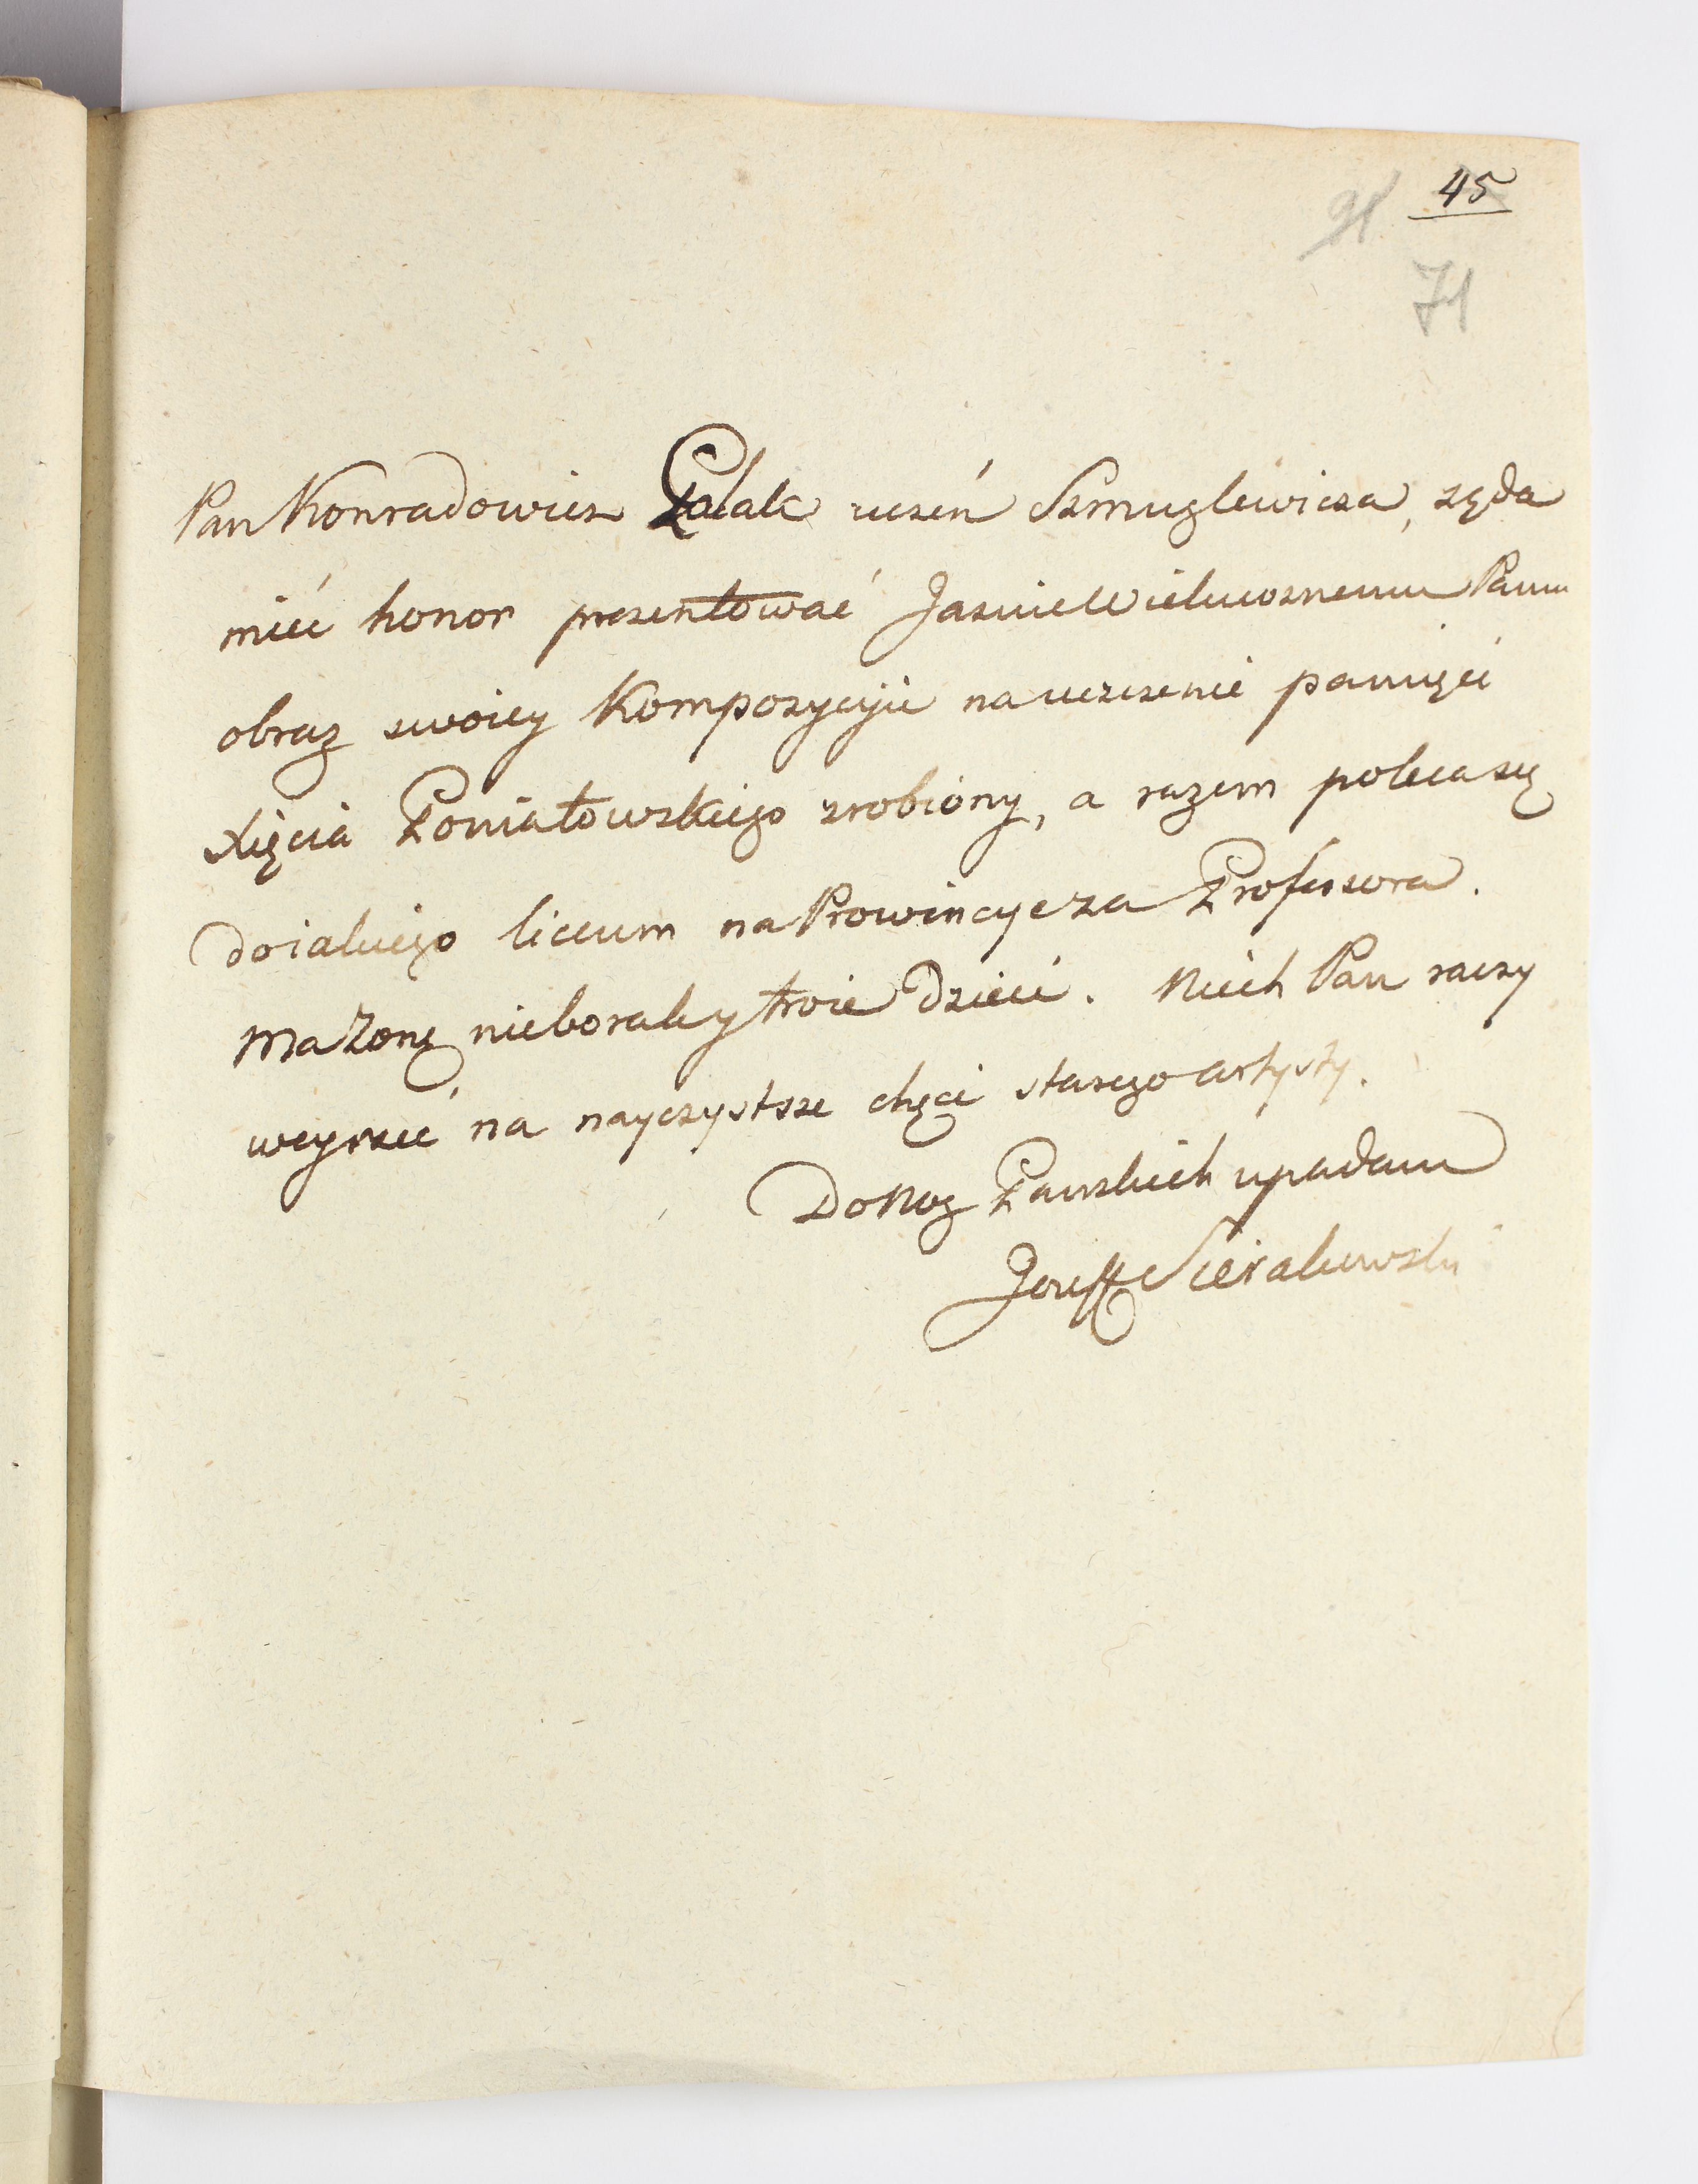 45
91
71
Pan Konradowicz Polak uczeń Szmuglewicza, ządа
mieć honor prezentować Jasnie Wielmoznemu Panu
obraz swoiey Kompozycyie na uczczenie pamięci
Xięcia Poniatowskiego zrobiony, a razem poleca się
do iakiego liceum na Prowincye za Professora.
Ma Zonę nieborak y troie Dzieci. Niech Pan raczy
weyrzeć na nayczystsze chęci starego artysty.
Do Nog Pańskich upadam
Jozeff Sierakowski